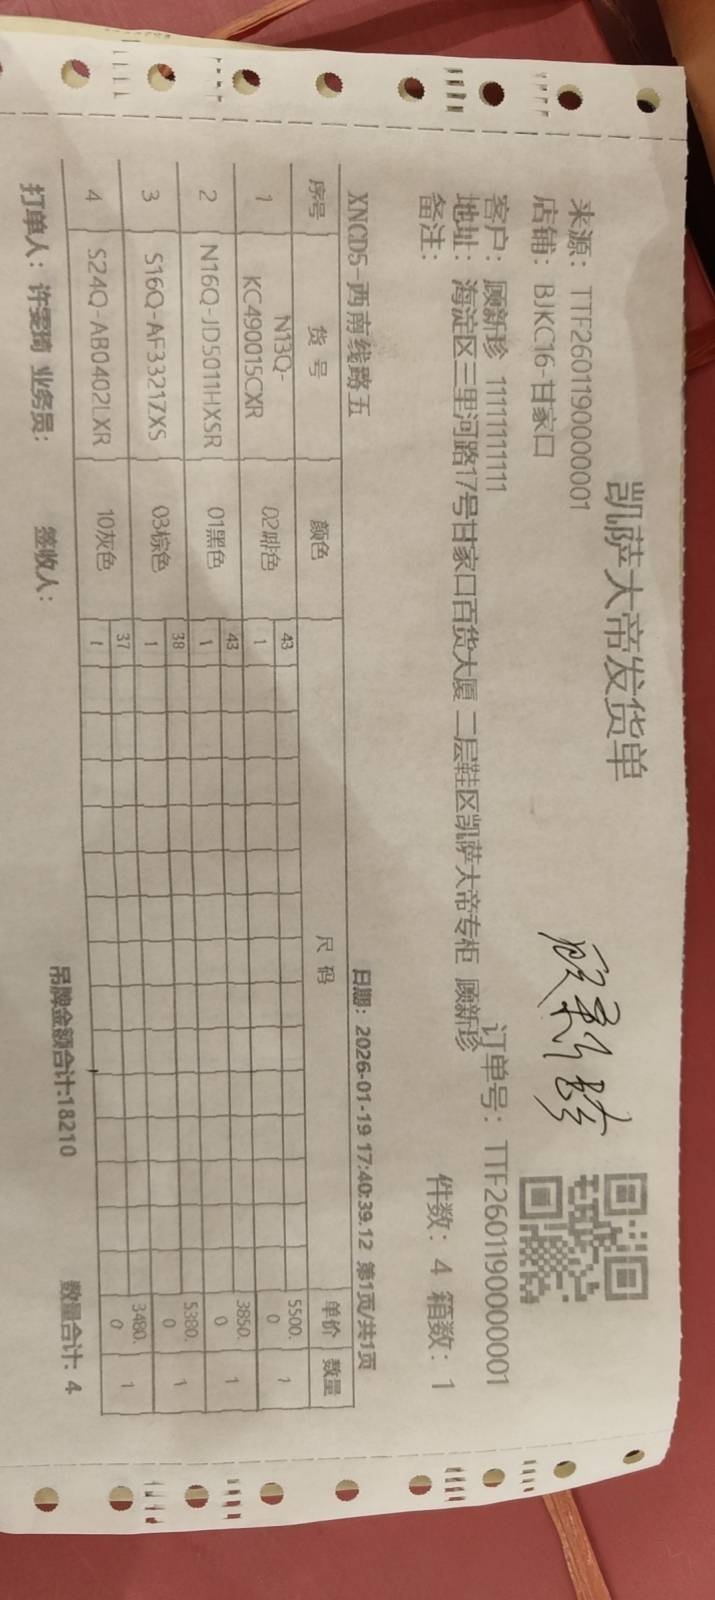 凯萨大帝发货单
顾新珍
来源：TTF260119000001
店铺：BJKC16-甘家口
客户：顾新珍 11111111111 订单号：TTF260119000001
地址：海淀区三里河路17号甘家口百货大厦 二层鞋区凯萨大帝专柜 顾新珍
备注： 件数：4 箱数：1
XNCD5-西南线路五 日期：2026-01-19 17:40:39.12 第1页/共1页
序号 货号 颜色 尺码 单价 数量
1 N13Q-KC490015CXR 02啡色 43 1 5500.0 1
2 N16Q-JD5011HXSR 01黑色 43 1 3850.0 1
3 S16Q-AF33217XS 03棕色 38 1 5380.0 1
4 S24Q-AB0402LXR 10灰色 37 1 3480.0 1
吊牌金额合计:18210 数量合计: 4
打单人：许雯琦 业务员： 签收人：